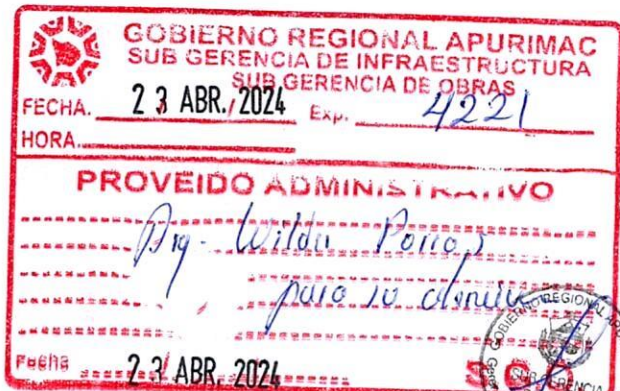 GOBIERNO REGIONAL APURIMAC
SUB GERENCIA DE INFRAESTRUCTURA
SUB GERENCIA DE OBRAS
FECHA. 23 ABR. 2024 Exp. 4221
HORA.
PROVEIDO ADMINISTRATIVO
Ing. Wilder Porras
para su
Fecha 23 ABR. 2024
GOBIERNO REGIONAL
SUB GERENCIA